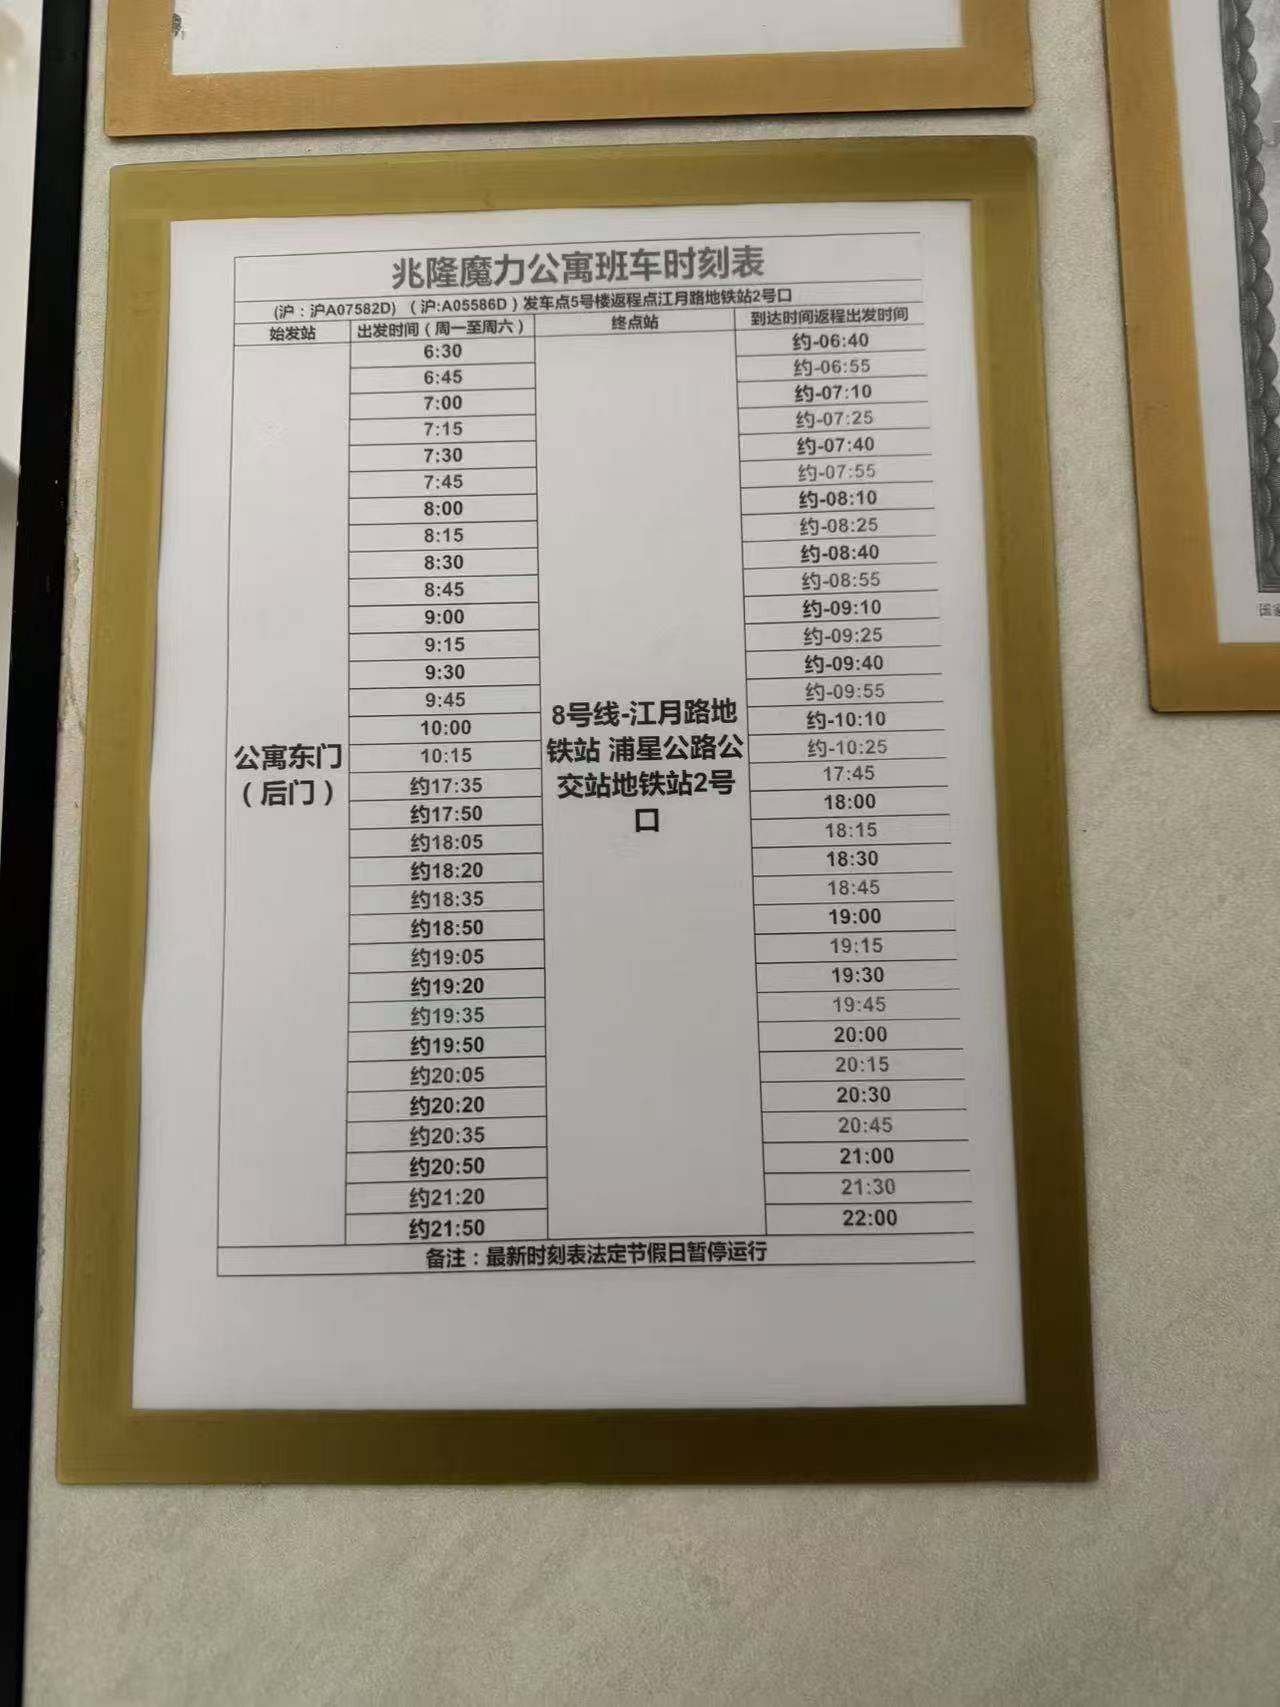 兆隆魔力公寓班车时刻表
(沪：沪A07582D) （沪:A05586D）发车点5号楼返程点江月路地铁站2号口
始发站 出发时间（周一至周六） 终点站 到达时间返程出发时间
6:30 约-06:40
6:45 约-06:55
7:00 约-07:10
7:15 约-07:25
7:30 约-07:40
7:45 约-07:55
8:00 约-08:10
8:15 约-08:25
8:30 约-08:40
8:45 约-08:55
9:00 约-09:10
9:15 约-09:25
9:30 约-09:40
9:45 约-09:55
10:00 约-10:10
10:15 约-10:25
公寓东门
（后门）
8号线-江月路地
铁站 浦星公路公
交站地铁站2号
口
约17:35 17:45
约17:50 18:00
约18:05 18:15
约18:20 18:30
约18:35 18:45
约18:50 19:00
约19:05 19:15
约19:20 19:30
约19:35 19:45
约19:50 20:00
约20:05 20:15
约20:20 20:30
约20:35 20:45
约20:50 21:00
约21:20 21:30
约21:50 22:00
备注：最新时刻表法定节假日暂停运行